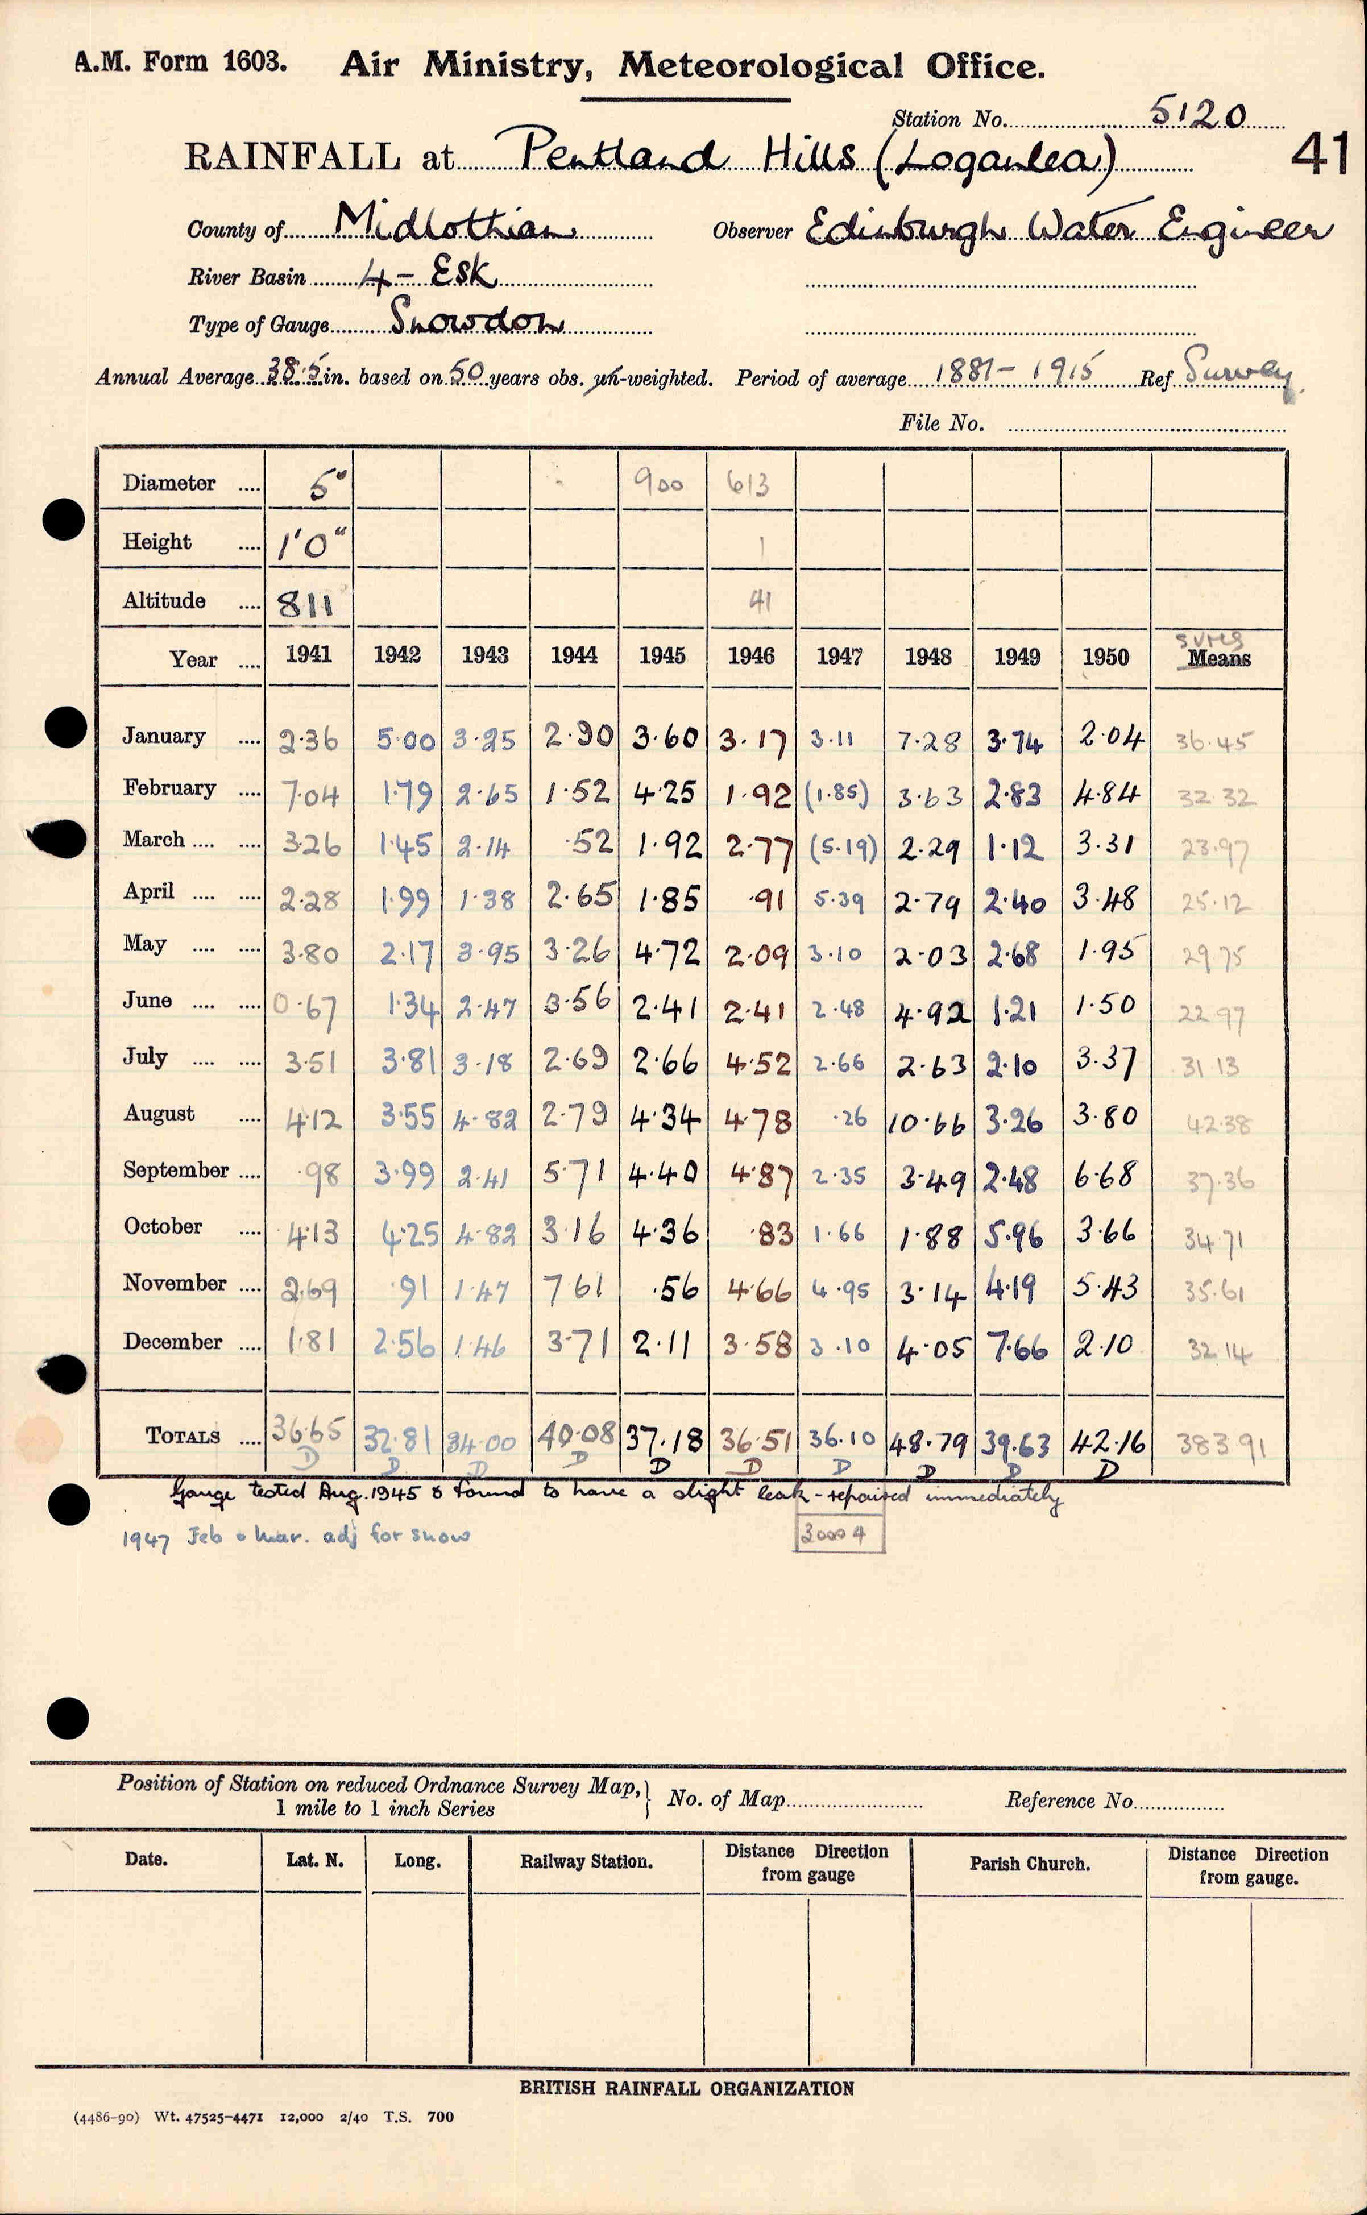 A.M. Form 1603. Air Ministry, Meteorological Office.
Station No. 5120
RAINFALL at Pentland Hills (Loganlea) 41
County of Midlothian Observer Edinburgh Water Engineer
River Basin 4 - Esk
Type of Gauge Snowdon
Annual Average 38.5 in. based on 50 years obs. un-weighted. Period of average 1881 - 1915 Ref Survey.
File No.
Diameter .... 5" 900 613
Height .... 1'0" 1
Altitude .... 811 41
SUMS
Year .... 1941 1942 1943 1944 1945 1946 1947 1948 1949 1950 Means
January .... 2.36 5.00 3.25 2.90 3.60 3.17 3.11 7.28 3.74 2.04 36.45
February .... 7.04 1.79 2.65 1.52 4.25 1.92 (1.85) 3.63 2.83 4.84 32.32
March .... .... 3.26 1.45 2.14 .52 1.92 2.77 (5.19) 2.29 1.12 3.31 23.97
April .... .... 2.28 1.99 1.38 2.65 1.85 .91 5.39 2.79 2.40 3.48 25.12
May .... .... 3.80 2.17 3.95 3.26 4.72 2.09 3.10 2.03 2.68 1.95 29.75
June .... .... 0.67 1.34 2.47 3.56 2.41 2.41 2.48 4.92 1.21 1.50 22.97
July .... .... 3.51 3.81 3.18 2.69 2.66 4.52 2.66 2.63 2.10 3.37 31.13
August .... 4.12 3.55 4.82 2.79 4.34 4.78 .26 10.66 3.26 3.80 42.38
September .... .98 3.99 2.41 5.71 4.40 4.87 2.35 3.49 2.48 6.68 37.36
October .... 4.13 4.25 4.82 3.16 4.36 .83 1.66 1.88 5.96 3.66 34.71
November .... 2.69 .91 1.47 7.61 .56 4.66 4.95 3.14 4.19 5.43 35.61
December .... 1.81 2.56 1.46 3.71 2.11 3.58 3.10 4.05 7.66 2.10 32.14
TOTALS .... 36.65 32.81 34.00 40.08 37.18 36.51 36.10 48.79 39.63 42.16 383.91
D D D D D D D D D D
Gauge tested Aug. 1945 & found to have a slight leak - repaired immediately
1947 Feb & Mar. adj for snow 3000 4
Position of Station on reduced Ordnance Survey Map, } No. of Map Reference No.
1 mile to 1 inch Series
Date. Lat. N. Long. Railway Station. Distance Direction from gauge Parish Church. Distance Direction from gauge.
BRITISH RAINFALL ORGANIZATION
(4486-90) Wt. 47525-4471 12,000 2/40 T.S. 700